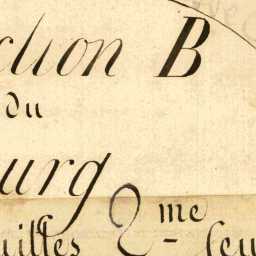 ction B
Du
urg
uilles 2me feu